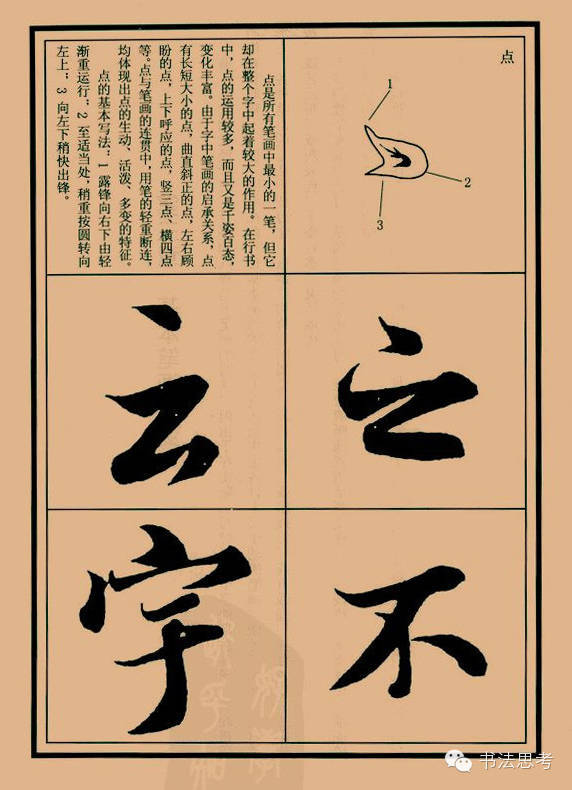 点
1
2
3
点是所有笔画中最小的一笔，但它
却在整个字中起着较大的作用。在行书
中，点的运用较多，而且又是千姿百态，
变化丰富。由于字中笔画的启承关系，点
有长短大小的点，曲直斜正的点，左右顾
盼的点，上下呼应的点，竖三点、横四点
等。点与笔画的连贯中，用笔的轻重断连，
均体现出点的生动、活泼、多变的特征。
点的基本写法：1 露锋向右下由轻
渐重运行；2 至适当处，稍重按圆转向
左上；3 向左下稍快出锋。
之
云
不
宇
书法思考